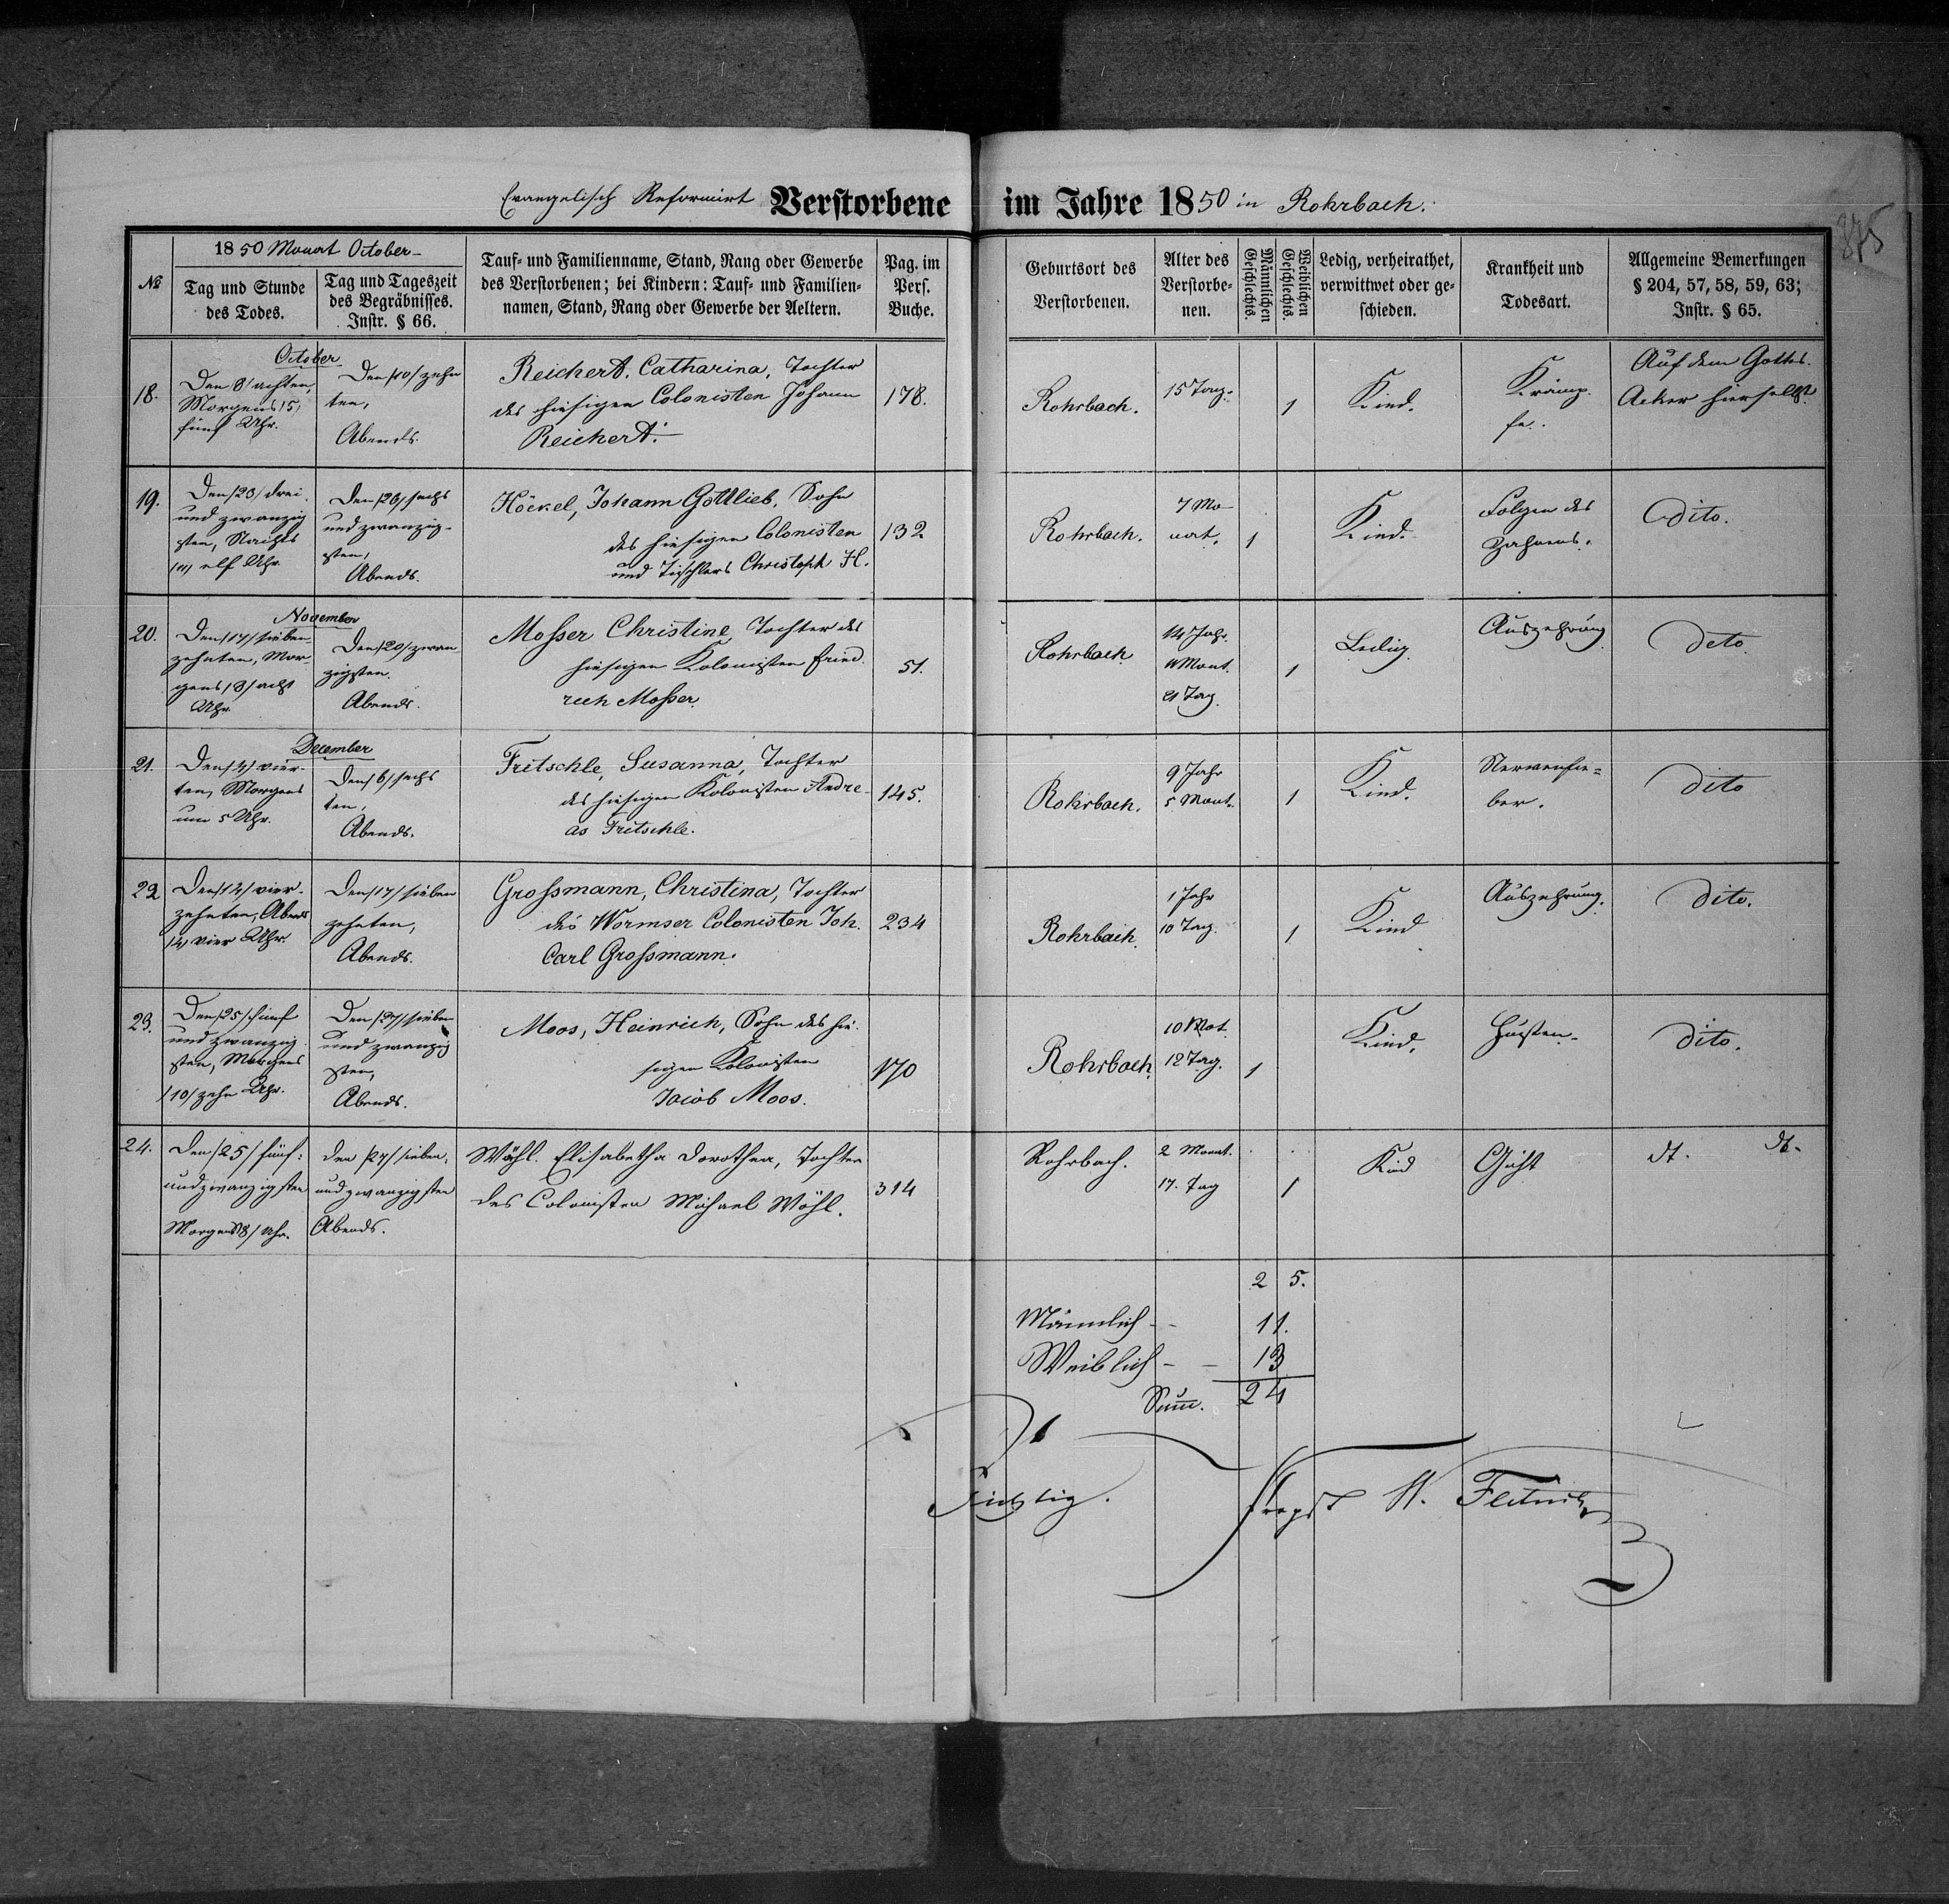 Evangelisch Reformirt Verstorbene im Jahre 1850 in Rohrbach.
875
1850 Monat October
№
Tag und Stunde
des Todes.
Tag und Tageszeit
des Begräbnisses.
Instr. § 66.
Tauf- und Familienname, Stand, Rang oder Gewerbe
des Verstorbenen; bei Kindern: Tauf- und Familien-
namen, Stand, Rang oder Gewerbe der Aeltern.
Pag. im
Pers.
Buche.
Geburtsort des
Verstorbenen.
Alter des
Verstorbe-
nen.
Männlichen
Geschlechts.
Weiblichen
Geschlechts.
Ledig, verheirathet,
verwittwet oder ge-
schieden.
Krankheit und
Todesart.
Allgemeine Bemerkungen
§ 204, 57, 58, 59, 63;
Instr. § 65.
October
18.
Den /8/ achten,
Morgens /5/
fünf Uhr.
Den /10/ zehn
ten,
Abends.
Reichert. Catharina, Tochter
des hiesigen Colonisten Johann
Reichert.
178.
Rohrbach.
15 Tag.
1
Kind.
Krämp-
fe.
Auf dem Gottes-
Acker hierselbst.
19.
Den /23/ drei
und zwanzig
sten, Nachts
/11/ elf Uhr.
Den /26/ sechs
und zwanzig-
sten,
Abends.
Höckel, Johann Gottlieb, Sohn
des hiesigen Colonisten
und Tischlers Christoph H.
132
Rohrbach.
7 Mo-
nat.
1
Kind.
Folgen des
Zahnens.
dito.
November
20.
Den /17/ sieben
zehnten, Mor-
gens /8/ acht
Uhr.
Den /20/ zwan
zigsten.
Abends.
Mosser Christine, Tochter des
hiesigen Kolonisten Fried-
rich Mosser.
51.
Rohrbach
14 Jahr.
11 Mont.
21 Tag.
1
Ledig.
Auszehrung
deto.
December
21.
Den /4/ vier-
ten, Morgens
um 5 Uhr.
Den /6/ sechs
ten,
Abends.
Fritschle, Susanna, Tochter
des hiesigen Kolonisten Andre-
as Fritschle.
145.
Rohrbach.
9 Jahr
5 Mont.
1
Kind.
Nervenfie=
ber.
dito
22
Den /14/ vier-
zehnten, Abends
/4/ vier Uhr.
Den /17/ sieben
zehnten,
Abends.
Grossmann, Christina, Tochter
des Wormser Colonisten Joh.
Carl Grossmann.
234
Rohrbach.
1 Jahr
10 Tag.
1
Kind
Auszehrung.
dito.
23.
Den /25/ fünf
und zwanzig
sten, Morgens
/10/ zehn Uhr.
Den /27/ sieben
und zwanzig
sten,
Abends.
Moos, Heinrich, Sohn des hie-
sigen Kolonisten
Jacob Moos.
170
Rohrbach.
10 Mot.
12 Tag.
1
Kind.
Husten.
dito.
24.
Den /25/ fünf:
und zwanzigsten
Morgens /8/ Uhr.
Den /27/ sieben.
und zwanzigsten
Abends.
Wöhl. Elisabetha Dorothea, Tochter
des Colonisten Michael Wöhl.
314
Rohrbach.
2 Monat.
17. Tag
1
Kind
dt. dt.
2 5.
Männlich - - 11.
Weiblich - - 13
Sum. 24
Richtig.
Propst W.